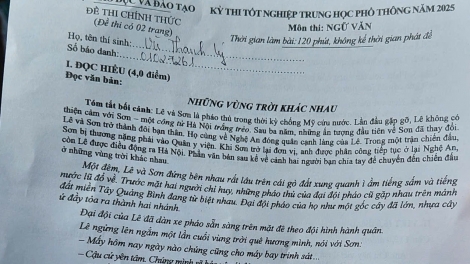 DỤC VÀ ĐÀO TẠO
KỲ THI TỐT NGHIỆP TRUNG HỌC PHỔ THÔNG NĂM 2025
ĐỀ THI CHÍNH THỨC
Môn thi: NGỮ VĂN
(Đề thi có 02 trang)
Thời gian làm bài: 120 phút, không kể thời gian phát đề
Họ, tên thí sinh:
Số báo danh:
I. ĐỌC HIỂU (4,0 điểm)
Đọc văn bản:
NHỮNG VÙNG TRỜI KHÁC NHAU
Tóm tắt bối cảnh: Lê và Sơn là pháo thủ trong thời kỳ chống Mỹ cứu nước. Lần đầu gặp gỡ, Lê không có
thiện cảm với Sơn – một công tử Hà Nội trắng trẻo. Sau ba năm, những ấn tượng đầu tiên về Sơn đã thay đổi.
Lê và Sơn trở thành đôi bạn thân. Họ cùng về Nghệ An đóng quân cạnh làng của Lê. Trong một trận chiến đấu,
Sơn bị thương nặng phải vào Quân y viện. Khi Sơn trở lại đơn vị, anh được phân công tiếp tục ở lại Nghệ An,
còn Lê được điều động ra Hà Nội. Phần văn bản sau kể về cảnh hai người bạn chia tay để chuyển đến chiến đấu
ở những vùng trời khác nhau.
Một đêm, Lê và Sơn đứng bên nhau rất lâu trên cái gò đất xung quanh ì ầm tiếng sấm và tiếng
nước lũ đổ về. Trước mặt hai người chỉ huy, những pháo thủ của đại đội pháo cũ gặp nhau trên mảnh
đất miền Tây Quảng Bình đang từ biệt nhau. Đại đội pháo của họ như một gốc cây đã lớn, nhựa cây
ứ đầy tỏa ra thành hai nhánh.
Đại đội của Lê đã dàn xe pháo sẵn sàng trên mặt đê theo đội hình hành quân.
Lê ngừng lên ngắm một lần cuối vùng trời quê hương mình, nói với Sơn:
– Mấy hôm nay ngày nào chúng cũng cho máy bay trinh sát...
– Cậu cứ yên tâm. Chúng mình